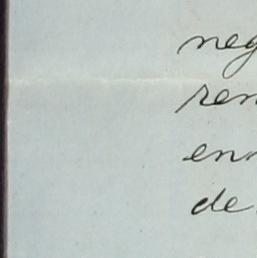 neg
ren
en
de